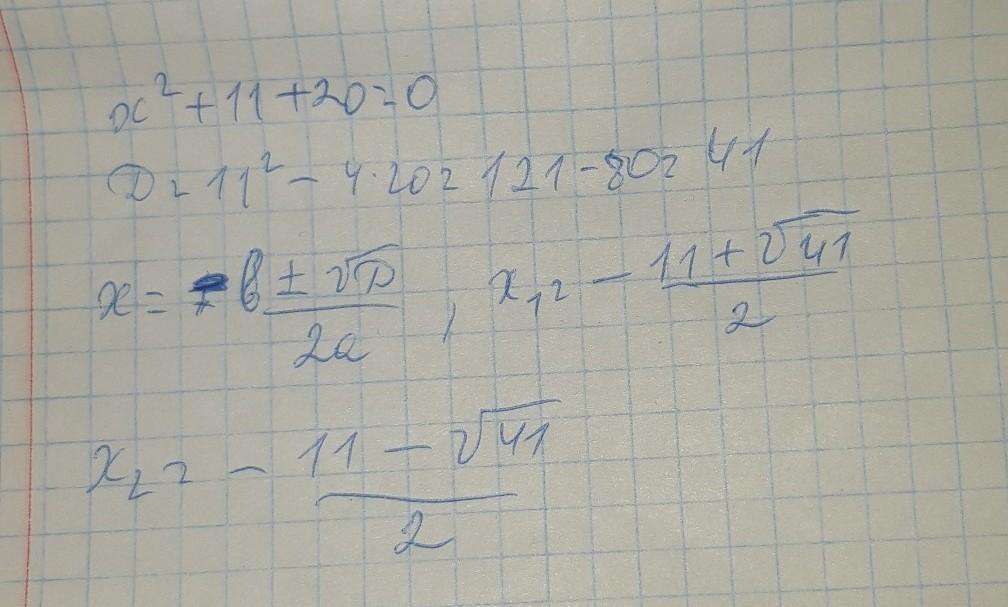 x² + 11 + 20 = 0
D = 11² - 4·20 = 121 - 80 = 41
x = -b ± √D / 2a , x₁ = - 11 + √41 / 2
x₂ = - 11 - √41 / 2